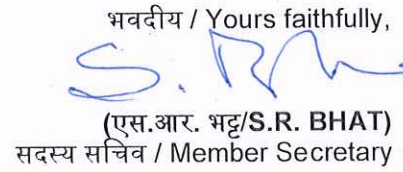 भवदीय / Yours faithfully,
S. Bh
(एस.आर. भट्ट/S.R. BHAT)
सदस्य सचिव / Member Secretary